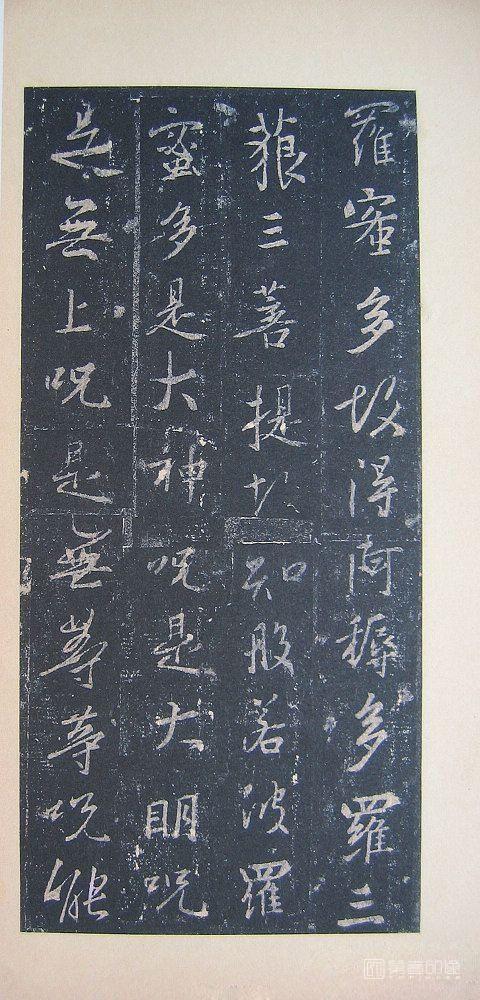 羅蜜多故得阿耨多羅三
藐三菩提故知般若波羅
蜜多是大神呪是大明呪
是無上呪是無等等呪能